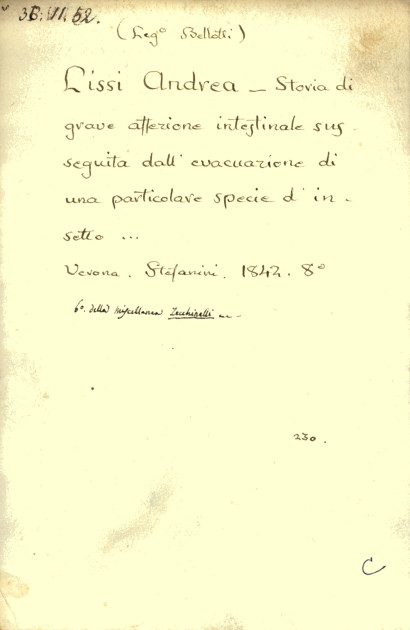 36.VI.52.
(Leg° Bellotti)
Lissi Andrea — Storia di
grave affezione intestinale sus-
seguita dall' evacuazione di
una particolare specie d' in-
setto ...
Verona. Stefanini. 1842. 8°
6°. della Miscellanea Zecchinelli —
230.
C